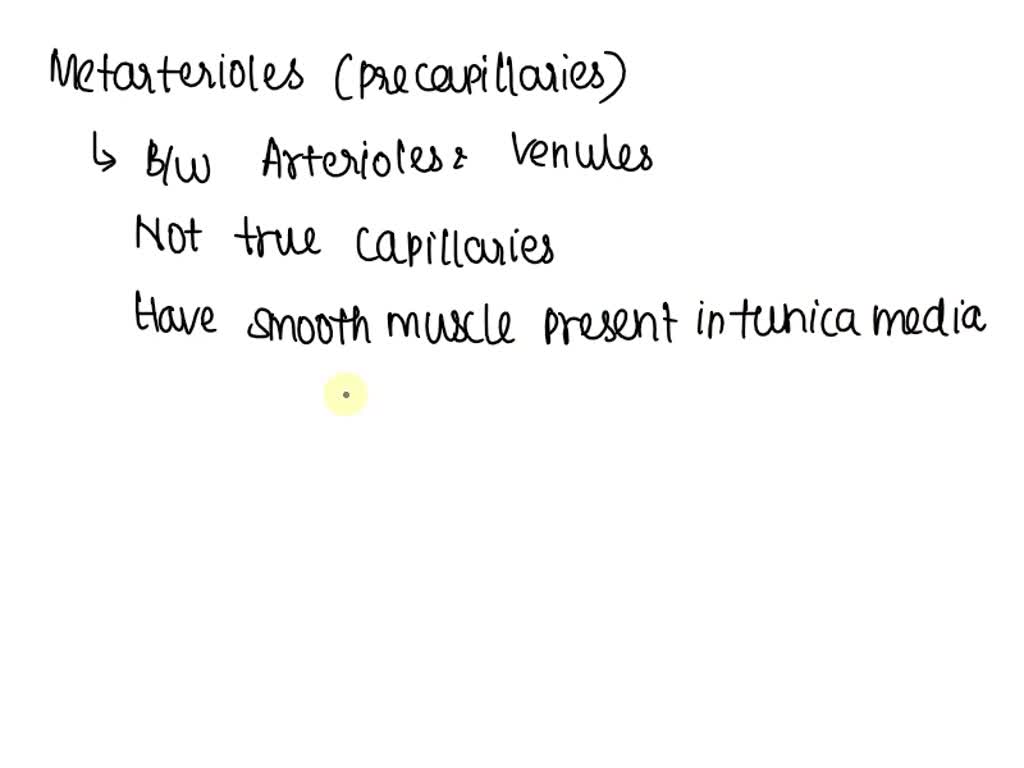 Metarterioles (precapillaries)
↳ B/W Arterioles & Venules
Not true capillaries
Have smooth muscle present in tunica media